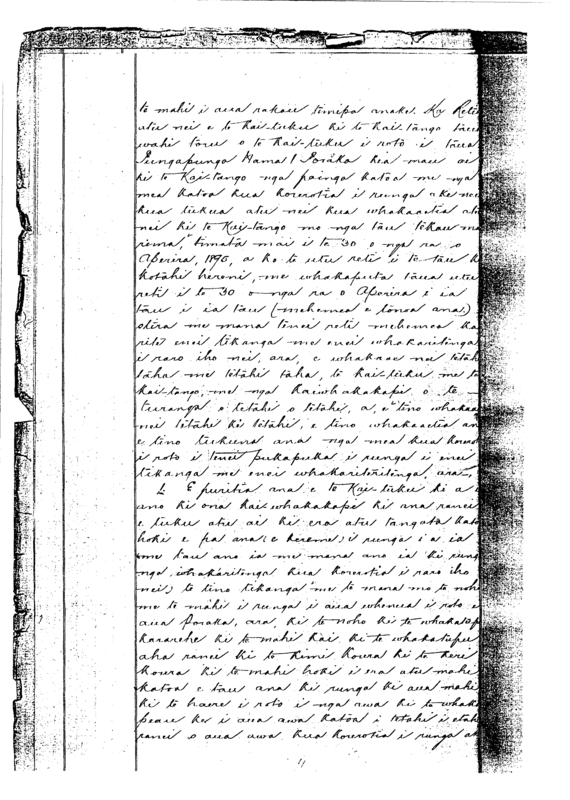 te mahi i aua rakau timipa anake. Ka Reti
atu nei e te Kai-tuku ki te Kai-tango taua
wahi taru o te Kai-tuku i roto i taua
Pungapunga Nama 1 Poraka kia mau ai
ki te Kai-tango nga painga katoa me nga
mea katoa kua korerotia i runga ake nei
kua tukua atu nei kua whakaaetia atu
nei ki te Kai-tango mo nga tau tekau ma
rima, timata mai i te 30 o nga ra o
Aperira, 1896, a ko te utu reti i te tau k
kotahi hereni, me whakaputa taua utu
reti i te 30 o nga ra o Aperira i ia
tau i ia tau (mehemea e tonoa ana)
otira me mana tenei reti mehemea ka
rite enei tikanga me enei whakaritenga
i raro iho nei, ara, e whakaae nei tetah
taha me tetahi taha, te kai-tuku me te
kai-tango, me nga Kaiwhakakapi o te
turanga o tetahi o tetahi, a, e tino whakaa
nei tetahi ki tetahi, e tino whakaaetia an
e tino tukuna ana nga mea kua korero
i roto i tenei pukapuka i runga i enei
tikanga me enei whakaritenga, ara,
1. E puritia ana e te Kai-tuku ki a
ano ki ona kai-whakakapi ki ana ranei
e tuku atu ai ki era atu tangata kato
hoki e pa ana (e hereme) i runga i a ia
me tau ano ia me mana ano ia ki rung
nga whakaritenga kua korerotia i raro iho
nei) te tino tikanga me te mana mo te noho
me te mahi i runga i aua whenua i roto i
aua Poraka, ara, ki te noho ki te whakatip
kararehe ki te mahi kai ki te whakatupu
aha ranei ki te kimi Koura ki te keri
Koura ki te mahi hoki i era atu mahi
katoa e tau ana ki runga ki aua mahi
ki te haere i roto i nga awa ki te whak
peau ke i aua awa katoa i tetahi i etah
ranei o aua awa. Kua korerotia i runga ak